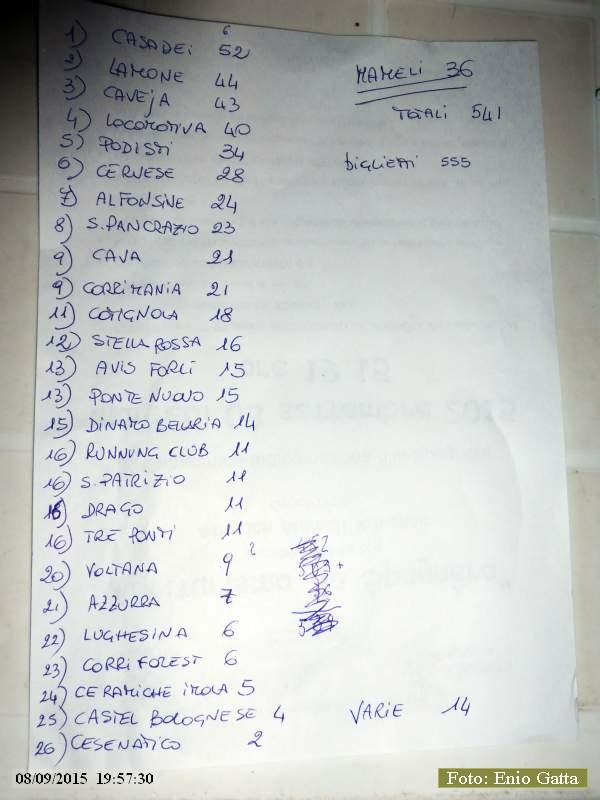 1) CASADEI 52
2) LAMONE 44
3) CAVEJA 43
4) LOCOMOTIVA 40
5) PODISTI 34
6) CERVESE 28
7) ALFONSINE 24
8) S.PANCRAZIO 23
9) CAVA 21
9) CORRIMANIA 21
11) COTIGNOLA 18
12) STELLA ROSSA 16
13) AVIS FORLÌ 15
13) PONTE NUOVO 15
15) DINAMO BELLARIA 14
16) RUNNUNG CLUB 11
16) S.PATRIZIO 11
16) DRAGO 11
16) TRE PONTI 11
20) VOLTANA 9
21) AZZURRA 7
22) LUGHESINA 6
23) CORRIFOREST 6
24) CERAMICHE IMOLA 5
25) CASTEL BOLOGNESE 4
26) CESENATICO 2
MAMELI 36
TOTALI 541
BIGLIETTI 555
VARIE 14
08/09/2015 19:57:30
Foto: Enio Gatta